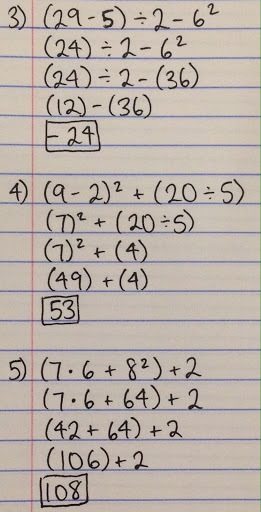 3) (29 - 5) ÷ 2 - 6²
(24) ÷ 2 - 6²
(24) ÷ 2 - (36)
(12) - (36)
-24
4) (9 - 2)² + (20 ÷ 5)
(7)² + (20 ÷ 5)
(7)² + (4)
(49) + (4)
53
5) (7 · 6 + 8²) + 2
(7 · 6 + 64) + 2
(42 + 64) + 2
(106) + 2
108